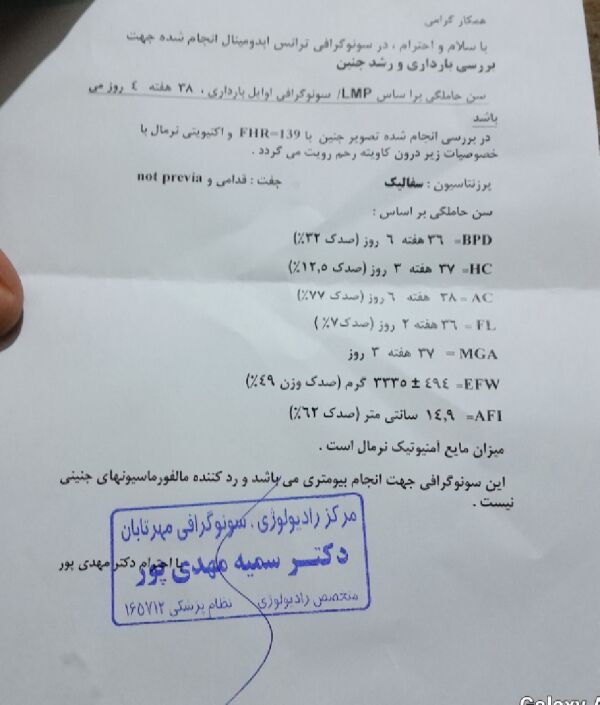 همکار گرامی
با سلام و احترام ، در سونوگرافی ترانس ابدومینال انجام شده جهت
بررسی بارداری و رشد جنین
سن حاملگی برا ساس LMP/ سونوگرافی اوایل بارداری ، ۳۸ هفته ۴ روز می
باشد
در بررسی انجام شده تصویر جنین با FHR=139 و اکتیویتی نرمال با
خصوصیات زیر درون کاویته رحم رویت می گردد .
پرزنتاسیون : سفالیک جفت : قدامی و not previa
سن حاملگی بر اساس :
BPD= ۳۶ هفته ۶ روز (صدک ۳۲٪)
HC= ۳۷ هفته ۳ روز (صدک ۱۲,۵٪)
AC = ۳۸ هفته ۶ روز (صدک ۷۷٪)
FL = ۳۶ هفته ۲ روز (صدک ۷٪ )
MGA = ۳۷ هفته ۳ روز
EFW= ۳۳۳۵ ± ۴۹۴ گرم (صدک وزن ۴۹٪)
AFI= ۱۴,۹ سانتی متر (صدک ۶۲٪)
میزان مایع آمنیوتیک نرمال است .
این سونوگرافی جهت انجام بیومتری می باشد و رد کننده مالفورماسیونهای جنینی
نیست .
مرکز رادیولوژی ، سونوگرافی مهرتابان
دکتر سمیه مهدی پور
با احترام دکتر مهدی پور
متخصص رادیولوژی نظام پزشکی ۱۶۵۷۱۲